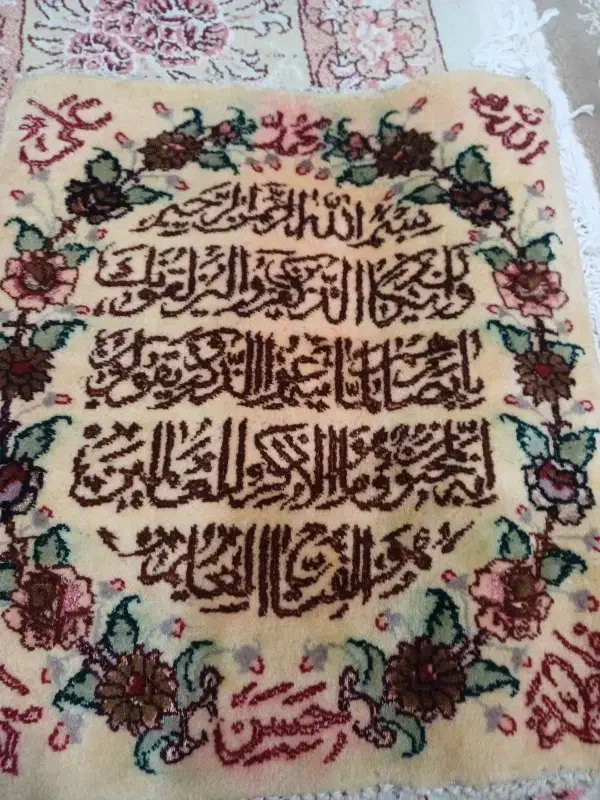 الله
محمد
علی
بسم الله الرحمن الرحیم
وان یکاد الذین کفروا لیزلقونک
بابصارهم لما سمعوا الذکر ویقولون
انه لمجنون وما هو الا ذکر للعالمین
صدق الله العلی العظیم
فاطمه
حسن